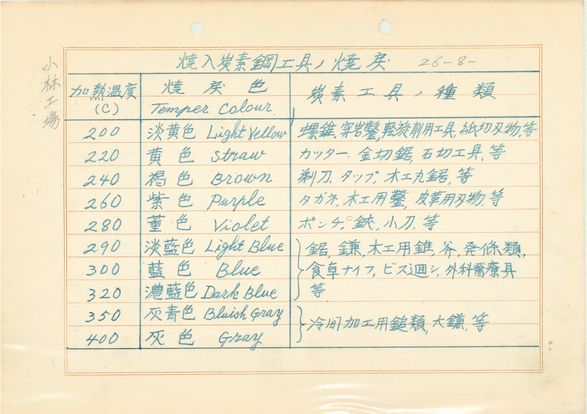 小林工場
焼入炭素鋼工具ノ焼戻 26-8-
加熱温度 焼戻色 炭素工具ノ種類
(C) Temper Colour
200 淡黄色 Light Yellow 螺錐, 穿岩鑿, 軽旋削用工具, 紙切刃物, 等
220 黄色 Straw カッター, 金切鋸, 石切工具, 等
240 褐色 Brown 剃刀, タップ, 木工丸鋸, 等
260 紫色 Purple タガネ, 木工用鑿, 皮革用刃物, 等
280 菫色 Violet ポンチ, 鋏, 小刀, 等
290 淡藍色 Light Blue 鋸, 鎌, 木工用錐, 斧, 発條類,
300 藍色 Blue 食卓ナイフ, ビズ廻シ, 外科醫療具
320 濃藍色 Dark Blue 等
350 灰青色 Bluish Gray 冷間加工用鎚類, 大鎌, 等
400 灰色 Gray